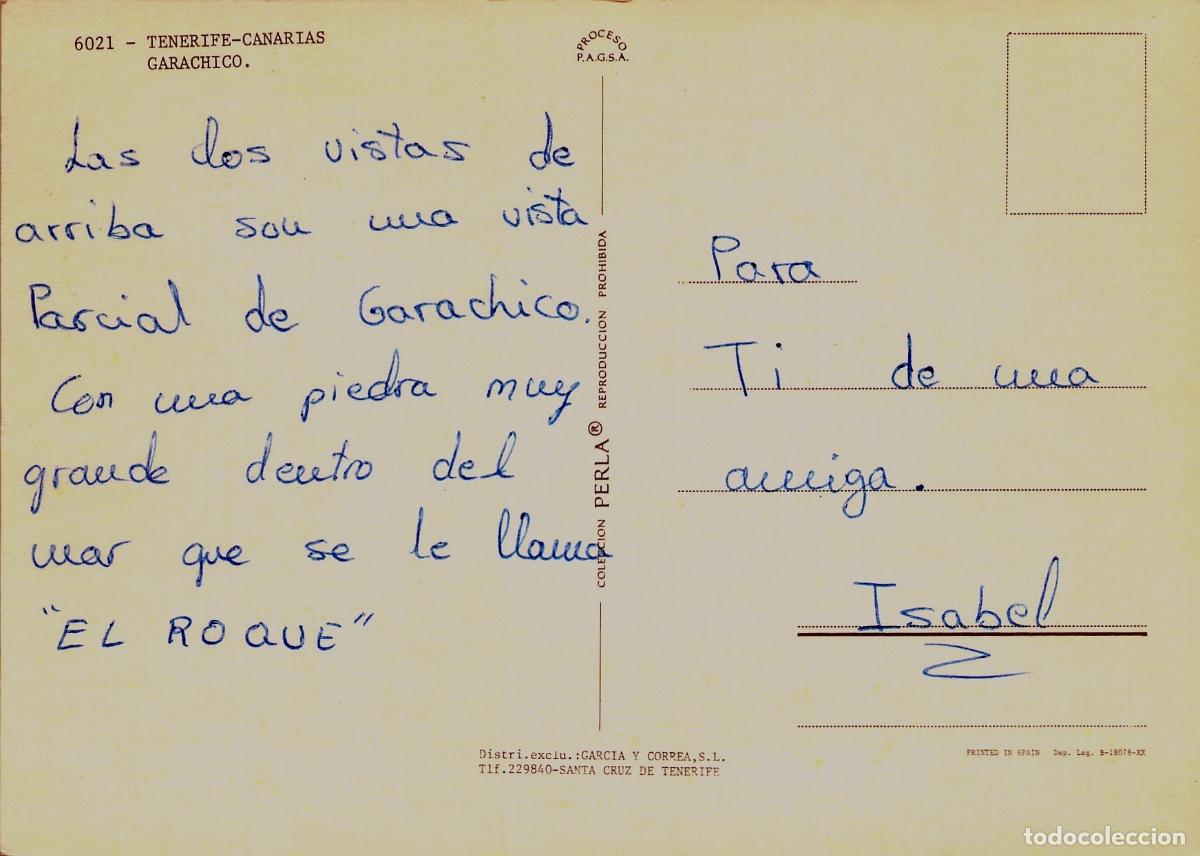 6021 - TENERIFE-CANARIAS
GARACHICO.
PROCESO
P.A.G.S.A.
Las dos vistas de
arriba son una vista
Parcial de Garachico.
Con una piedra muy
grande dentro del
mar que se le llama
"EL ROQUE"
COLECCION PERLA® REPRODUCCION PROHIBIDA
Para
Ti de una
amiga.
Isabel
Distri.exclu.:GARCIA Y CORREA,S.L.
Tlf.229840-SANTA CRUZ DE TENERIFE
PRINTED IN SPAIN Dep. Leg. B-18078-XX
todocoleccion